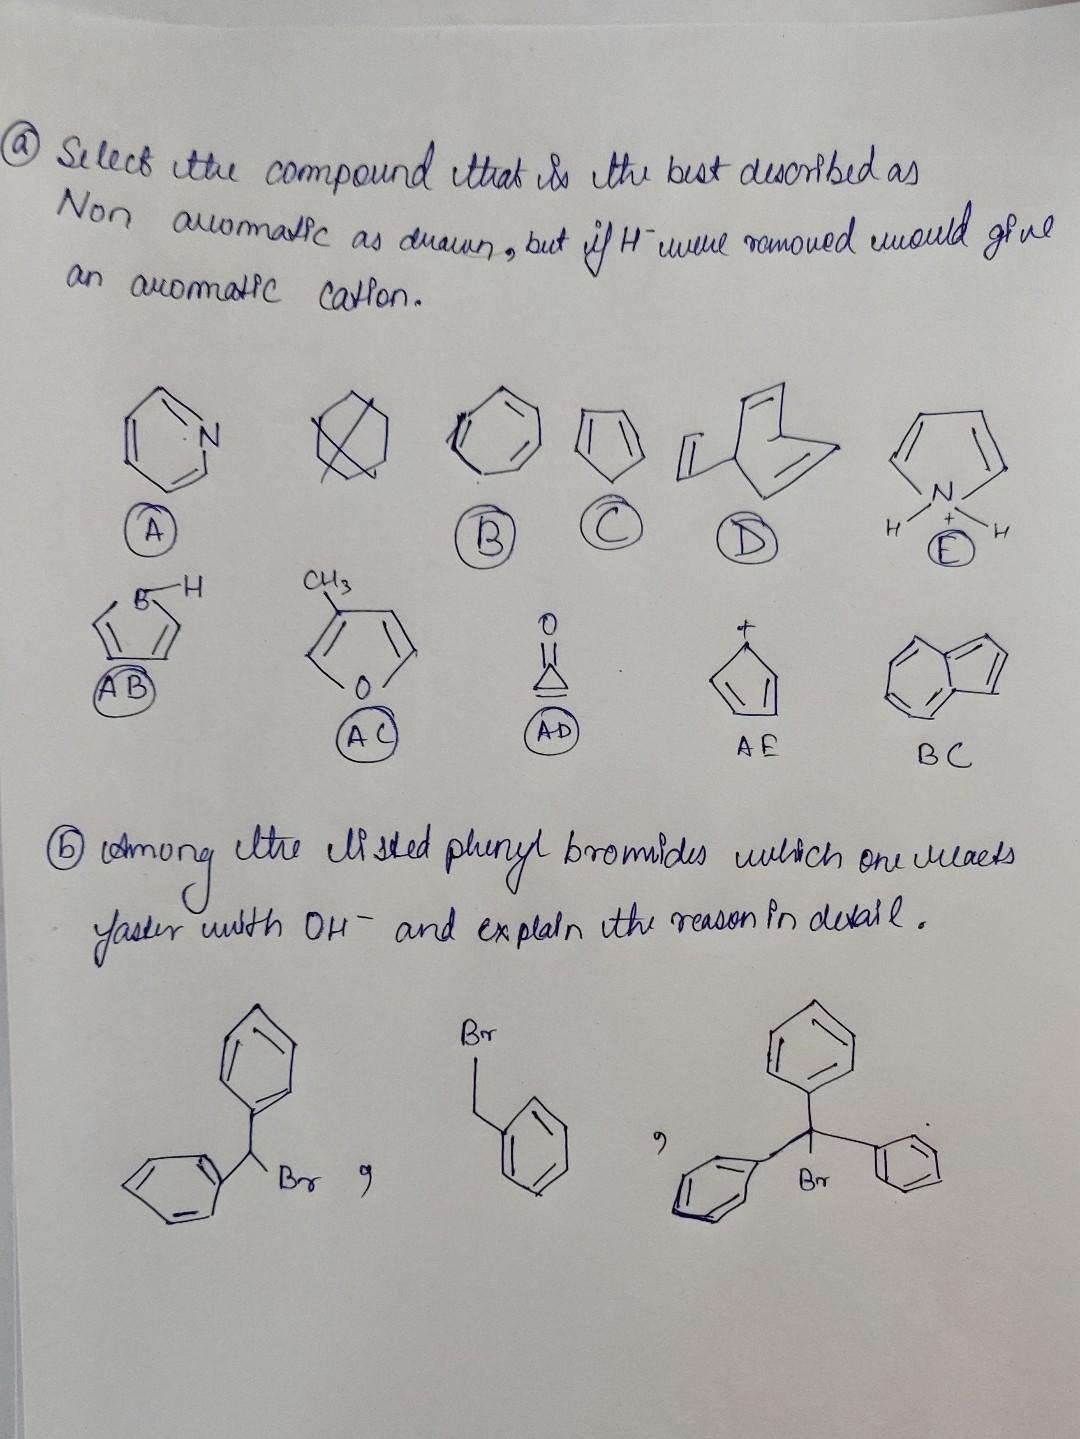 ⓐ Select the compound that is the best described as
Non aromatic as drawn, but if H⁻ were removed would give
an aromatic cation.
N
A
B
C
D
N
+
H
H
E
B-H
AB
CH3
O
AC
O
AD
+
AE
BC
ⓑ Among the listed phenyl bromides which one reacts
faster with OH⁻ and explain the reason in detail.
Br ,
Br
,
Br